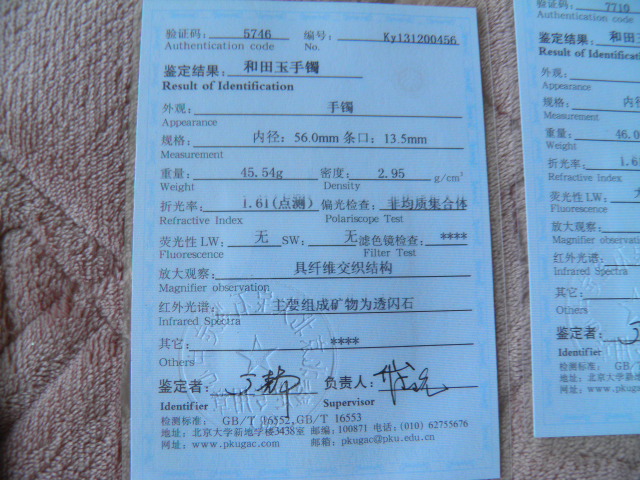 验证码: 5746 编号: Ky131200456
Authentication code No.
鉴定结果: 和田玉手镯
Result of Identification
外观: 手镯
Appearance
规格: 内径: 56.0mm 条口: 13.5mm
Measurement
重量: 45.54g 密度: 2.95 g/cm³
Weight Density
折光率: 1.61(点测) 偏光检查: 非均质集合体
Refractive Index Polariscope Test
荧光性 LW: 无 SW: 无 滤色镜检查: ****
Fluorescence Filter Test
放大观察: 具纤维交织结构
Magnifier observation
红外光谱: 主要组成矿物为透闪石
Infrared Spectra
其它: ****
Others
鉴定者: 负责人:
Identifier Supervisor
检测标准: GB/T 16552,GB/T 16553
地址: 北京大学新地学楼3438室 邮编: 100871 电话: (010) 62755676
网址: www.pkugac.com 邮箱: pkugac@pku.edu.cn
验证码: 7710
Authentication code
鉴定结果: 和田
Result of Identifi
外观:
Appearance
规格: 内径
Measurement
重量: 46.0
Weight
折光率: 1.6
Refractive Index
荧光性 LW:
Fluorescence
放大观察:
Magnifier observa
红外光谱:
Infrared Spectra
其它:
Others
鉴定者:
Identifier
检测标准: GB/T
地址: 北京大学新地学
网址: www.pkugac.c